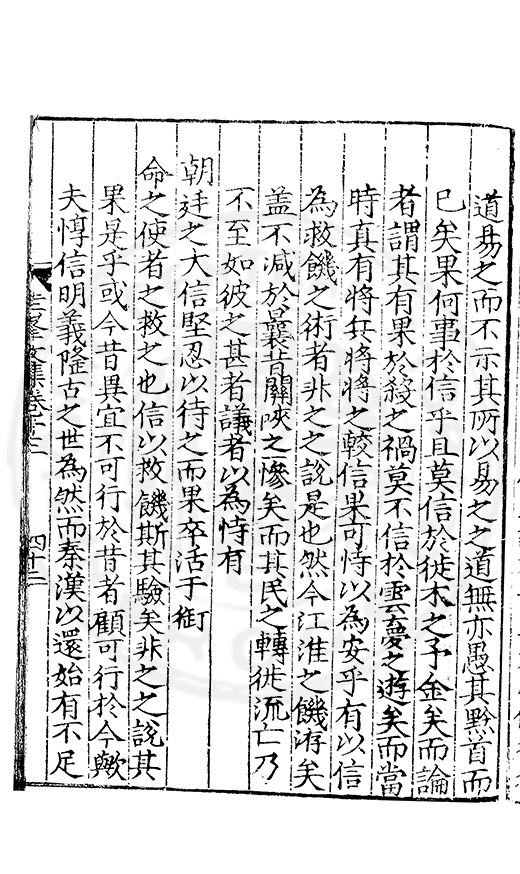 道易之而不示其所以易之之道無亦愚其黔首而
已矣果何事於信乎且莫信於徙木之予金矣而論
者謂其有果於殺之禍莫不信於雲夢之遊矣而當
時真有將兵將將之較信果可恃以為安乎有以信
為救饑之術者非之之說是也然今江淮之饑洊矣
盖不减於曩昔關陜之慘矣而其民之轉徙流亡乃
不至如彼之甚者議者以為恃有
朝廷之大信堅忍以待之而果卒活于銜
命之使者之救之也信以救饑斯其驗矣非之之說其
果是乎或今昔異宜不可行於昔者顧可行於今歟
夫惇信明義隆古之世為然而秦漢以還始有不足
文集卷十二
四十二